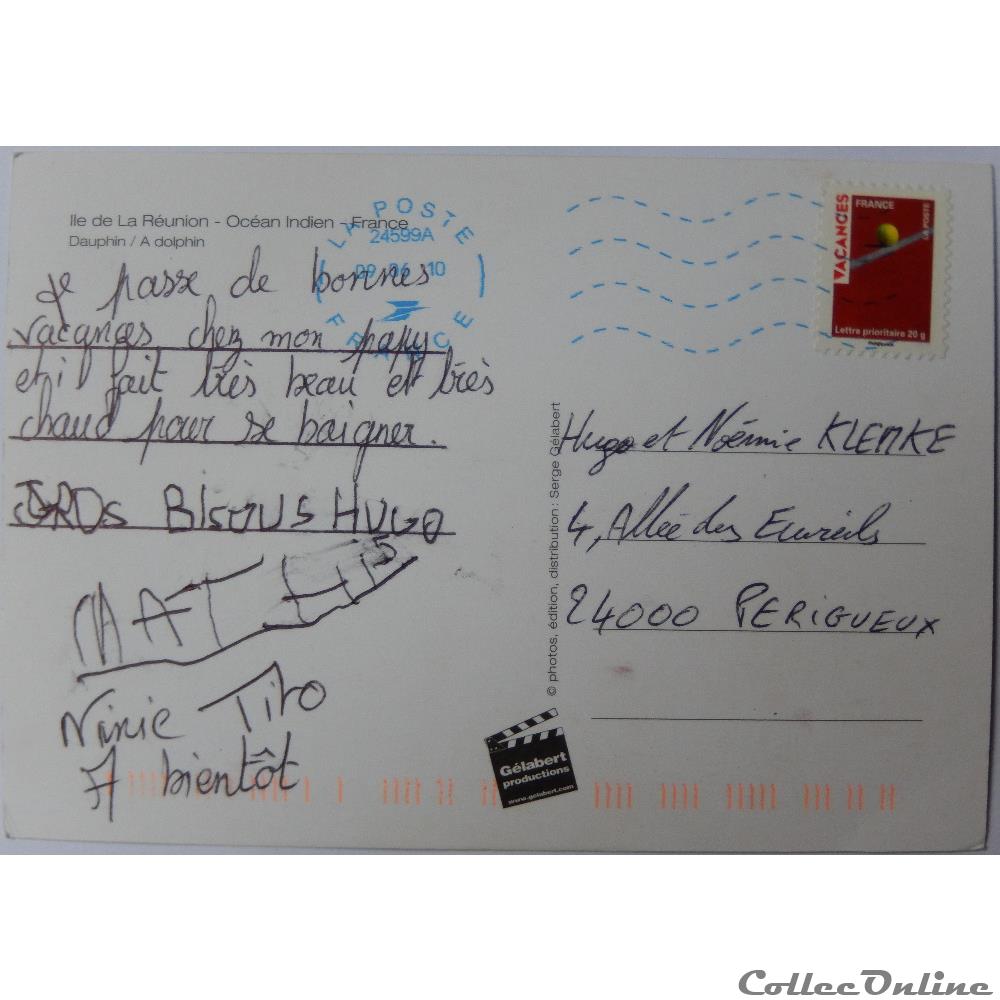 Ile de La Réunion - Océan Indien - France
Dauphin / A dolphin
LA POSTE
24599A
10
FRANCE
VACANCES
FRANCE
LA POSTE
Lettre prioritaire 20 g
Je passe de bonnes
vacances chez mon papy
et il fait très beau et très
chaud pour se baigner.
GROs BISOUS HUGO
MATHIS
Ninie Tito
A bientôt
© photos, édition, distribution : Serge Gélabert
Hugo et Noémie KLEMKE
4, Allée des Ecureils
24000 PERIGUEUX
Gélabert
productions
www.gelabert.com
CollecOnline